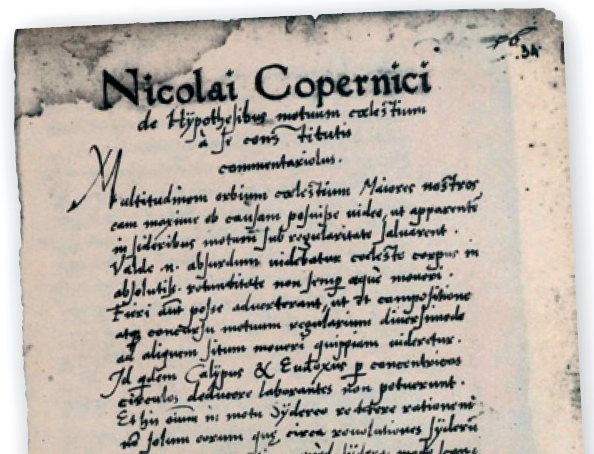 34
Nicolai Copernici
de Hypothesibus motuum cœlestium
à se constitutis
commentariolus.
Multitudinem orbium cœlestium Maiores nostros
eam maxime ob causam posuisse video, ut apparentē
in sideribus motum sub regularitate salvarent.
Valde .n. absurdum videbatur cœleste corpus in
absolutiss. rotunditate non semp æque moveri.
Fieri aūt posse adverterant, ut et compositione
atq concursu motuum regularium diversimode
ad aliquem situm moveri quippiam videretur.
Id qdem Calippus & Eudoxus p concentricos
circulos deducere laborantes non potuerunt.
Et his oīum in motu sydereo reddere rationem
nō solum eorum quę circa revolutiones syderū